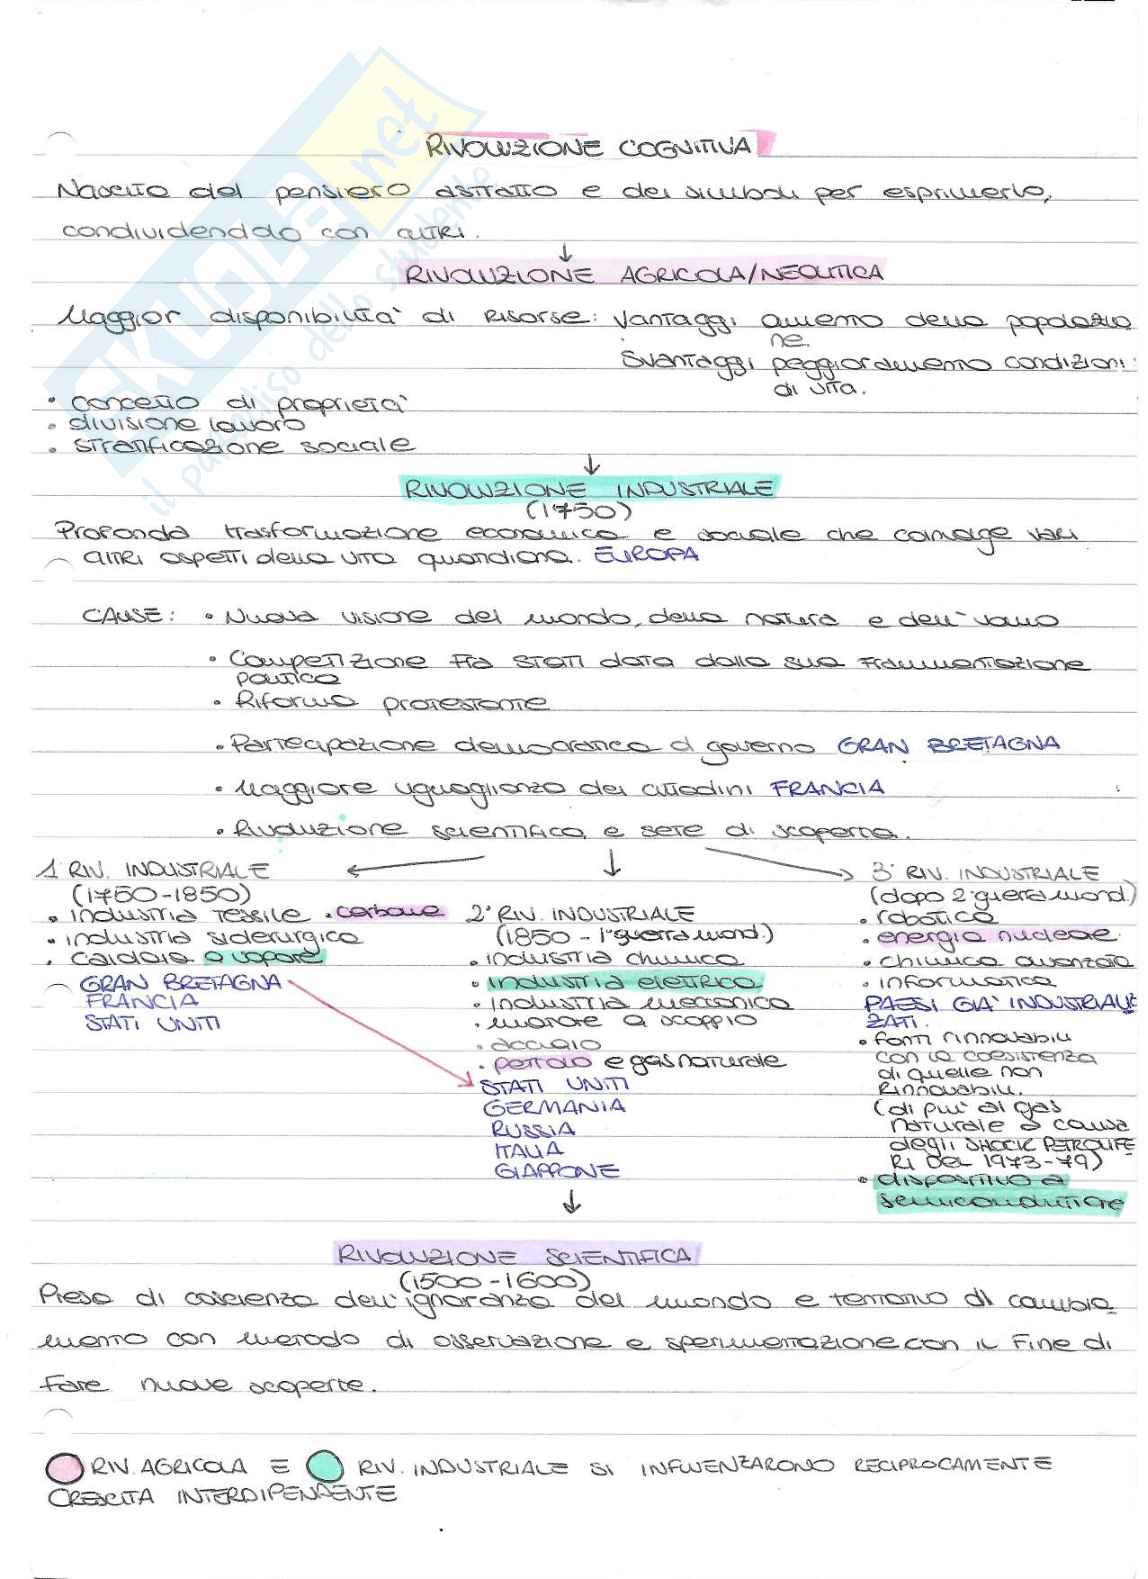 SKUOLA.net
il paradiso dello studente
RIVOLUZIONE COGNITIVA
Nascita del pensiero astratto e dei simboli per esprimerlo,
condividendolo con altri.
↓
RIVOLUZIONE AGRICOLA/NEOLITICA
Maggior disponibilità di risorse: vantaggi aumento della popolazio
ne.
svantaggi peggioramento condizioni
di vita.
• concetto di proprietà
• divisione lavoro
• stratificazione sociale
↓
RIVOLUZIONE INDUSTRIALE
(1750)
Profonda trasformazione economica e sociale che coinvolge vari
altri aspetti della vita quotidiana. EUROPA
CAUSE: • Nuova visione del mondo, della natura e dell'uomo
• Competizione tra stati data dalla sua frammentazione
politica
• Riforma protestante
• Partecipazione democratica al governo GRAN BRETAGNA
• Maggiore uguaglianza dei cittadini FRANCIA
• Rivoluzione scientifica e sete di scoperta.
1 RIV. INDUSTRIALE
(1750-1850)
• industria tessile • carbone
• industria siderurgica
• caldaia a vapore
GRAN BRETAGNA
FRANCIA
STATI UNITI
↓
2° RIV. INDUSTRIALE
(1850 - 1°guerra mond.)
• industria chimica
• industria elettrica
• industria meccanica
• motore a scoppio
• acciaio
• petrolio e gas naturale
STATI UNITI
GERMANIA
RUSSIA
ITALIA
GIAPPONE
3° RIV. INDUSTRIALE
(dopo 2°guerra mond.)
• robotica
• energia nucleare
• chimica avanzata
• informatica
PAESI GIA' INDUSTRIALIZ
ZATI.
• fonti rinnovabili
con la coesistenza
di quelle non
rinnovabili.
(di piu' al gas
naturale a causa
degli SHOCK PETROLIFE
RI DEL 1973-79)
• dispositivo a
semiconduttore
↓
RIVOLUZIONE SCIENTIFICA
(1500-1600)
Presa di coscienza dell'ignoranza del mondo e tentativo di cambia
mento con metodo di osservazione e sperimentazione con il fine di
fare nuove scoperte.
RIV. AGRICOLA E RIV. INDUSTRIALE SI INFLUENZARONO RECIPROCAMENTE
CRESCITA INTERDIPENDENTE